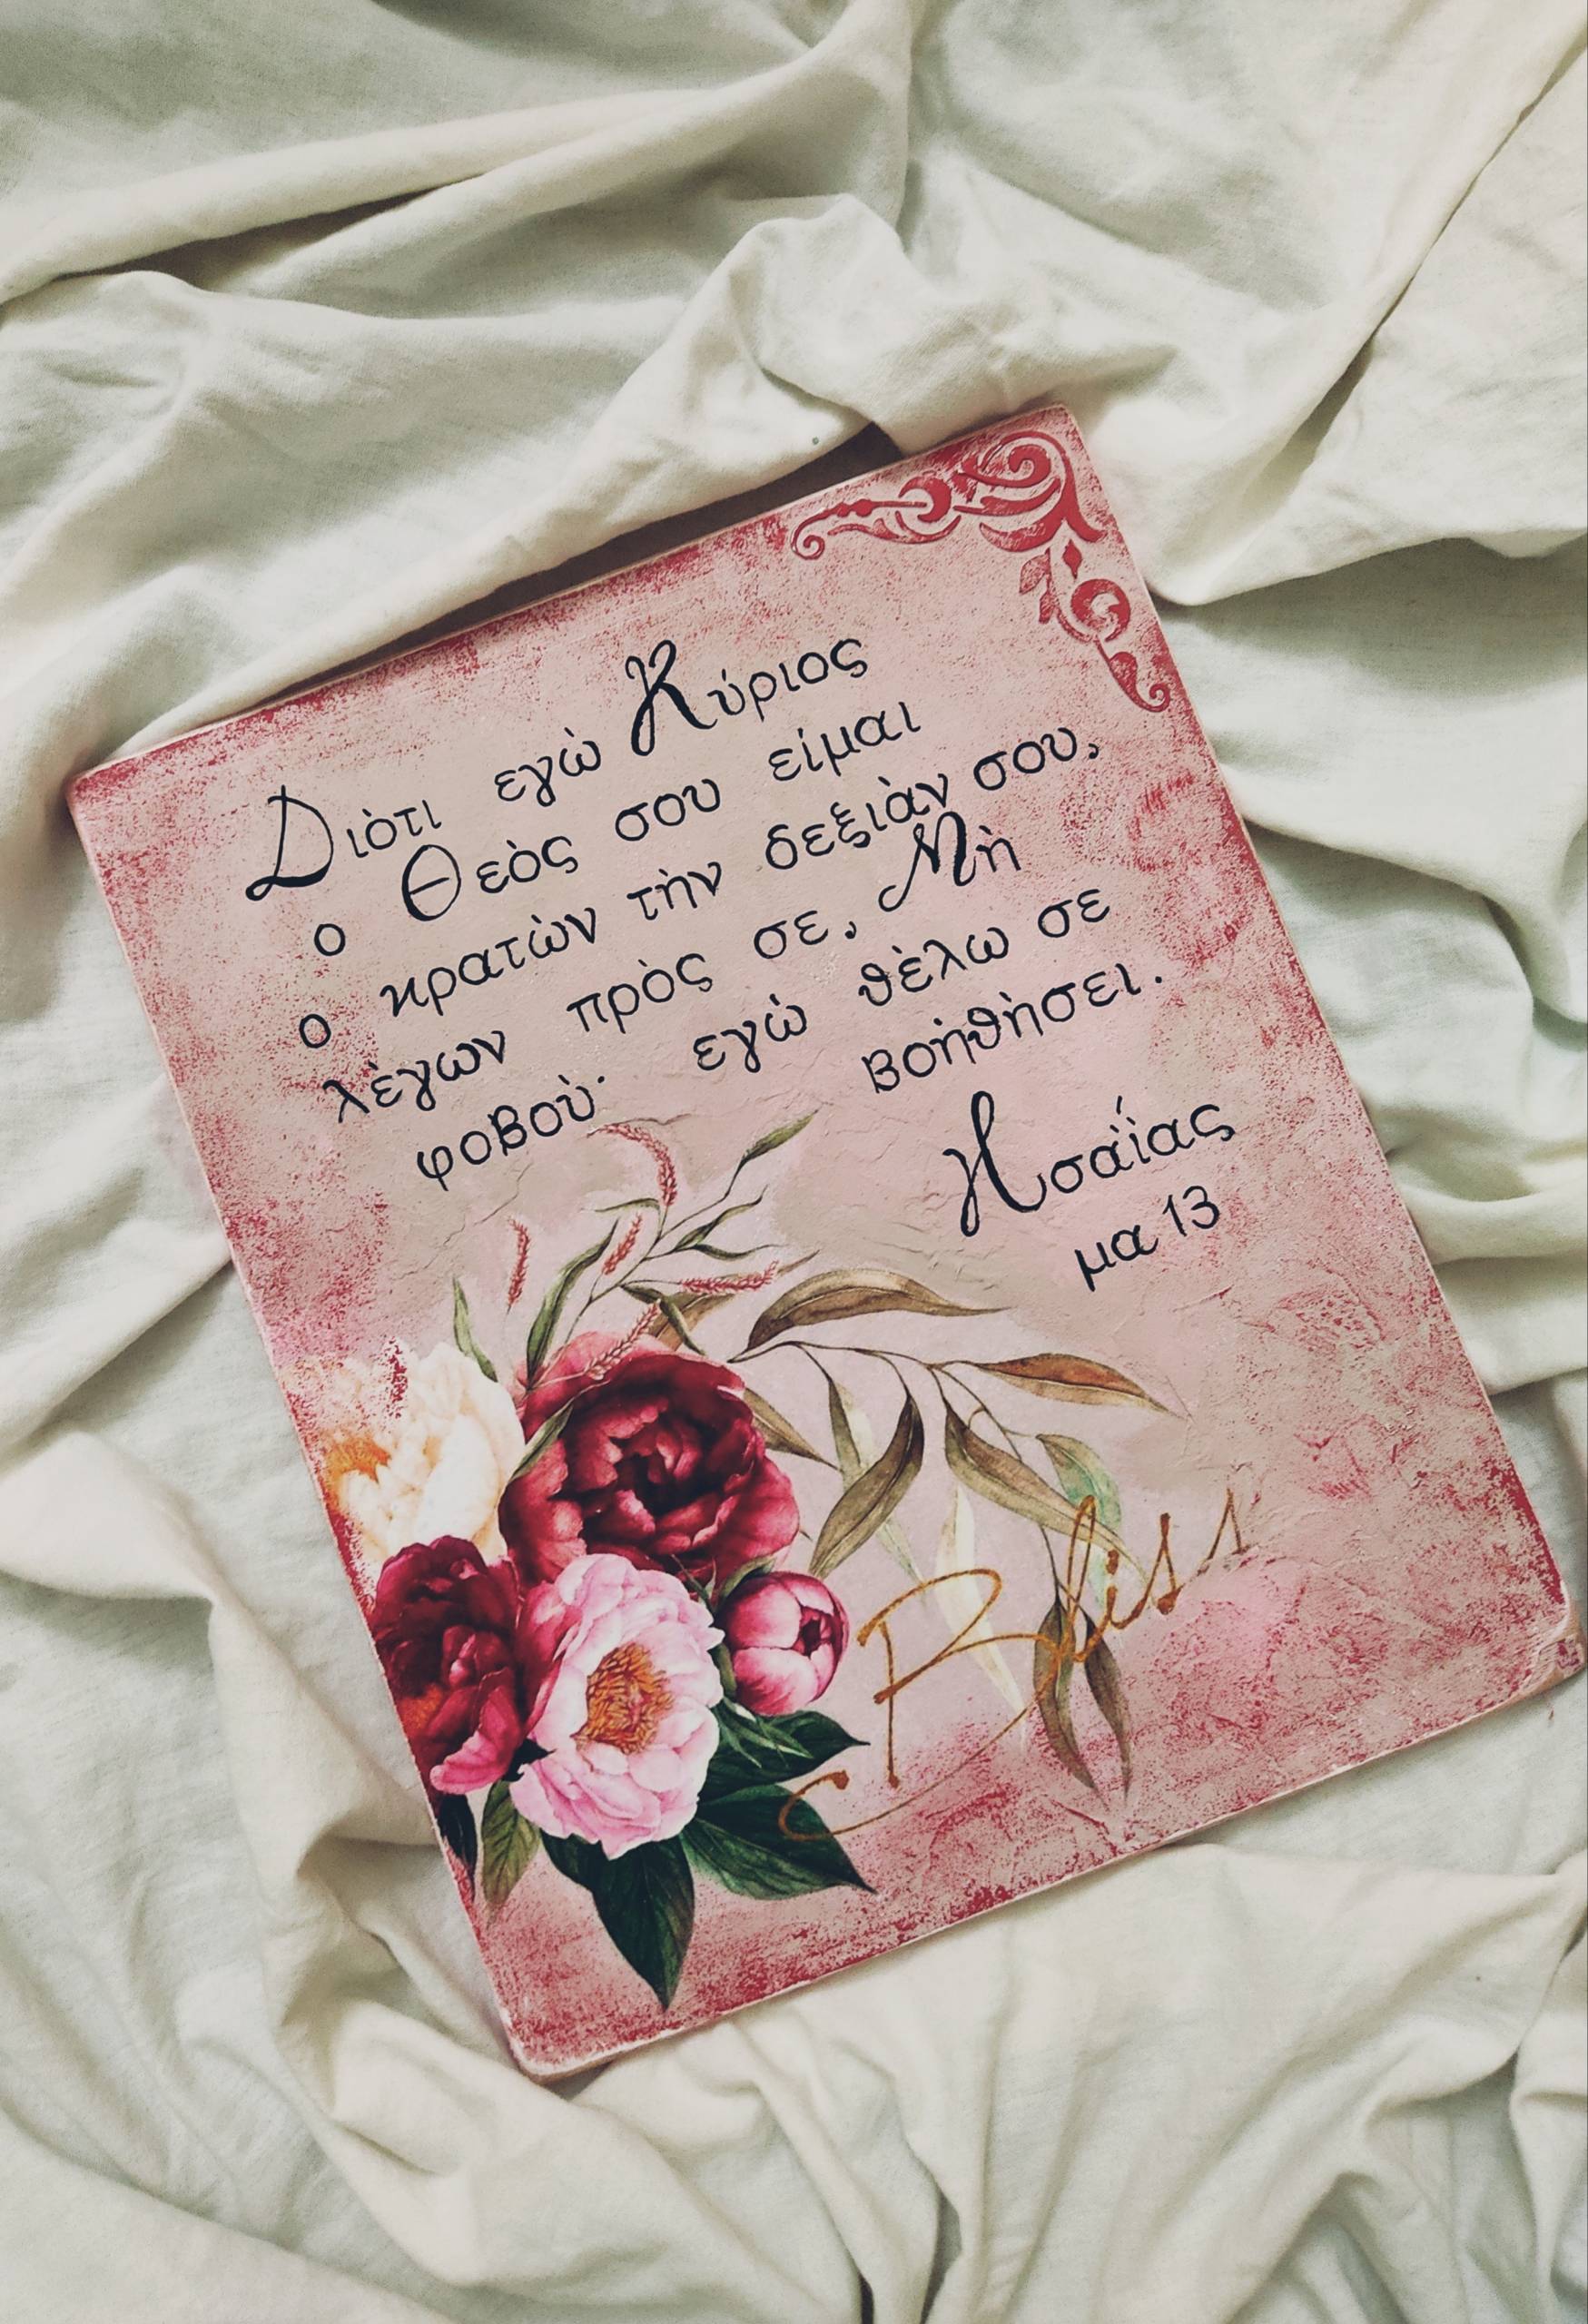 Διότι εγώ Κύριος
ο Θεὸς σου είμαι
ο κρατών τὴν δεξιὰν σου,
λέγων πρὸς σε, Μὴ
φοβού· εγώ θέλω σε
βοήθήσει.
Ησαΐας
μα 13
Bliss